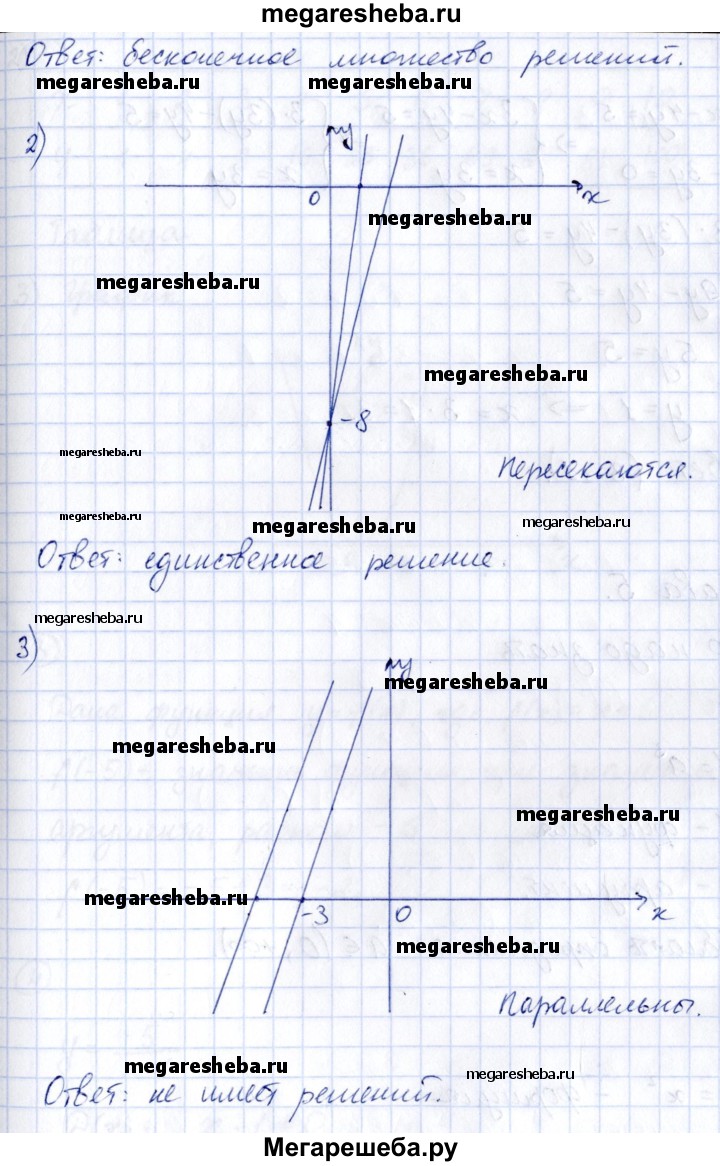 megaresheba.ru
Ответ: бесконечное множество решений.
megaresheba.ru megaresheba.ru
2)
y
0
x
megaresheba.ru
megaresheba.ru
megaresheba.ru
-8
megaresheba.ru
Пересекаются.
megaresheba.ru
megaresheba.ru
megaresheba.ru
Ответ: единственное решение.
megaresheba.ru
3)
y
megaresheba.ru
megaresheba.ru
megaresheba.ru
megaresheba.ru
-3
0
x
megaresheba.ru
Параллельны.
megaresheba.ru
megaresheba.ru
Ответ: не имеет решений.
Мегарешеба.ру